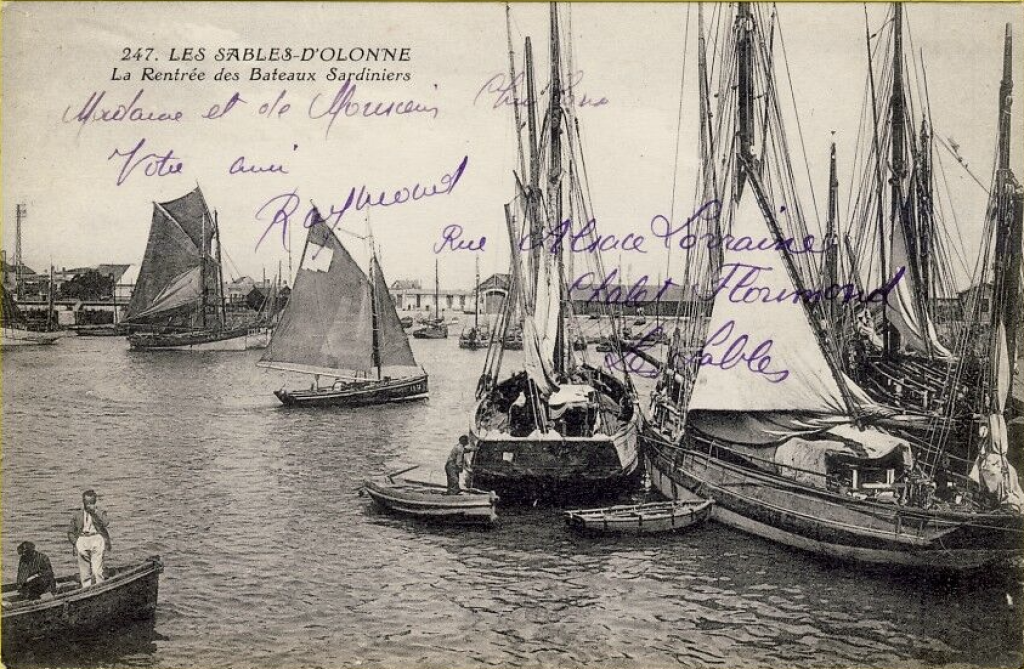 247. LES SABLES-D'OLONNE
La Rentrée des Bateaux Sardiniers
Madame et de Monsieur
Votre ami
Raymond
Rue Alsace Lorraine
Chalet Florimond
Les Sables